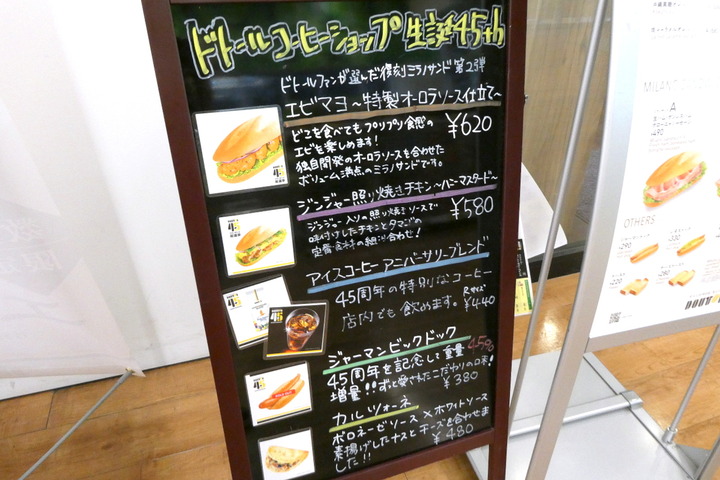 ドトールコーヒーショップ 生誕45th
ドトールファンが選んだ復刻ミラノサンド 第2弾
エビマヨ ～特製オーロラソース仕立て～
どこを食べてもプリプリ食感の
エビを楽しめます!
独自開発のオーロラソースを合わせた
ボリューム満点のミラノサンドです。
¥620
ジンジャー照り焼きチキン ～ハニーマスタード～
ジンジャー入りの照り焼きソースで
味付けしたチキンとタマゴの
定番食材の組み合わせ!
¥580
アイスコーヒー アニバーサリーブレンド
45周年の特別なコーヒー
店内でも飲めます。
Rサイズ
¥440
ジャーマンビックドック
45周年を記念して重量45%
増量!!ずっと愛されたこだわりの味!
¥380
カルツォーネ
ボロネーゼソース×ホワイトソース
素揚げしたナスとチーズを合わせま
した!!
¥480
MILANO
A
¥490
OTHERS
¥290
¥330